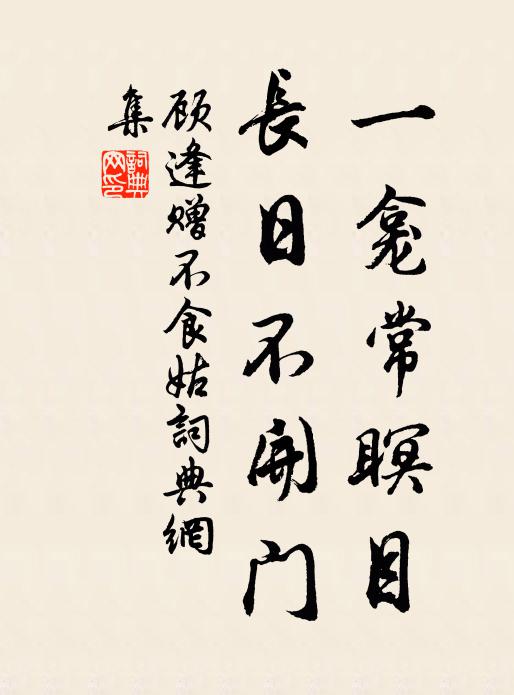 一龕常瞑目
長日不開門
顾逢赠不食姑詞典網
集
詞典
网印